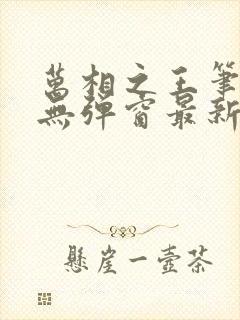 萬相之王筆
無彈窗最新
懸崖一壺茶